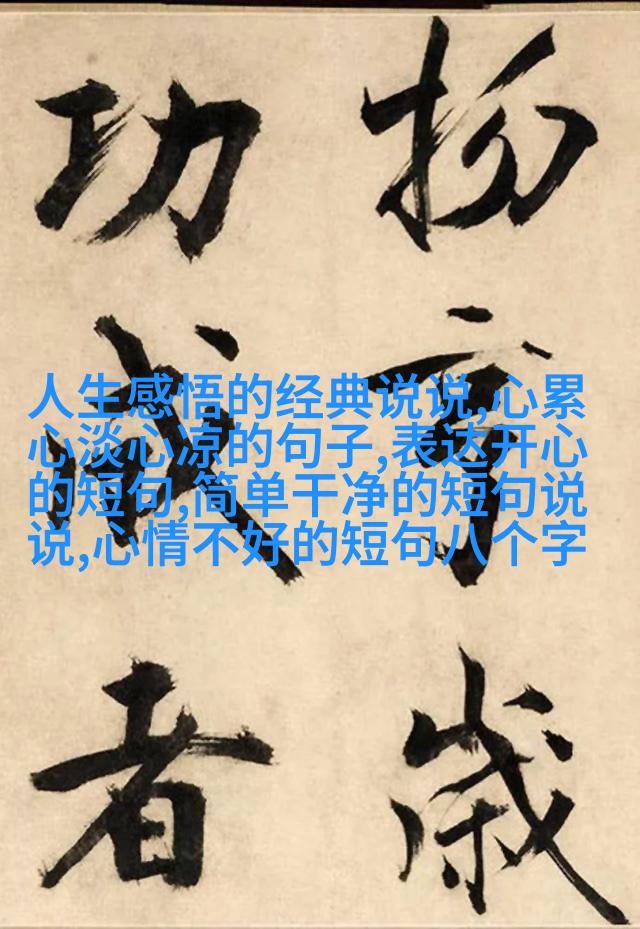 人生感悟的经典说说,心累
心淡心凉的句子,表达开心
的短句,简单干净的短句说
说,心情不好的短句八个字
歳
功成者